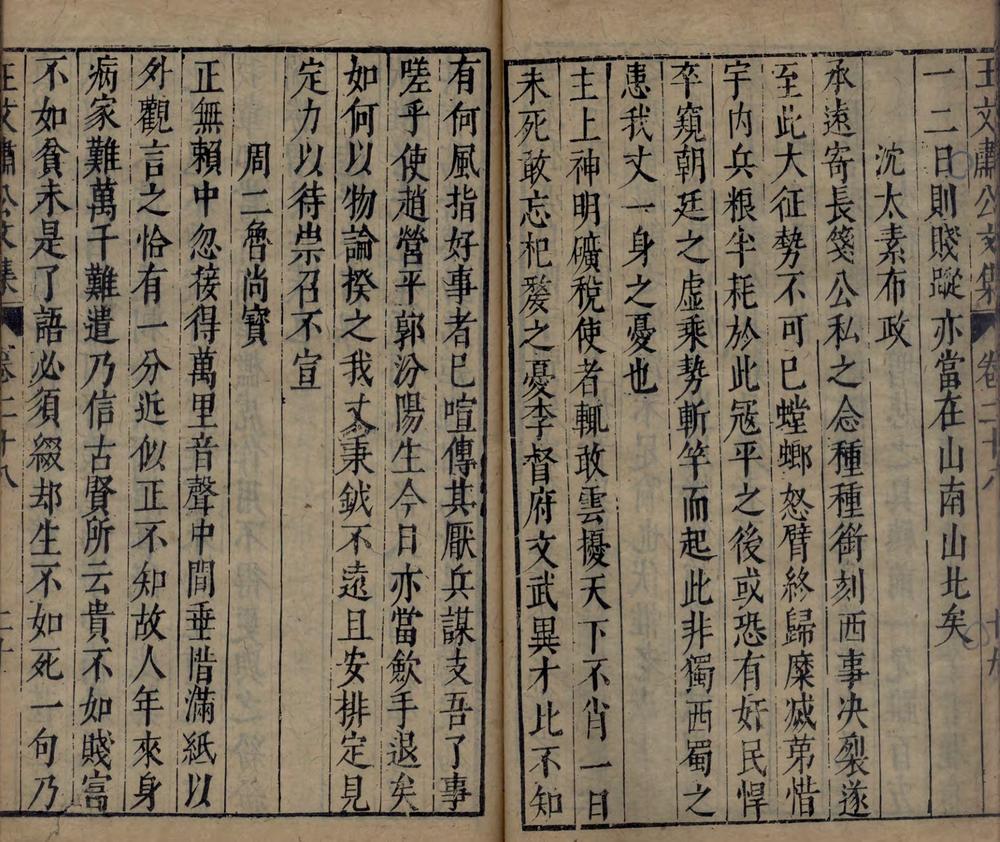 王文肅公文集 卷二十八 十九
一二日則賤蹤亦當在山南山北矣
沈太素布政
承遠寄長箋公私之念種種銜刻西事决裂遂
至此大征勢不可已螳螂怒臂終歸糜滅苐惜
宇内兵粮半耗於此冦平之後或恐有奸民悍
卒窺朝廷之虛乘勢斬竿而起此非獨西蜀之
患我丈一身之憂也
主上神明礦稅使者輒敢雲擾天下不肖一日
未死敢忘杞嫠之憂李督府文武異才比不知
有何風指好事者已喧傳其厭兵謀支吾了事
嗟乎使趙營平郭汾陽生今日亦當歛手退矣
如何以物論揆之我丈秉鉞不遠且安排定見
定力以待祟召不宣
周二魯尚寳
正無賴中忽接得萬里音聲中間垂㫺滿紙以
外觀言之恰有一分近似正不知故人年來身
病家難萬千難遣乃信古賢所云貴不如賤富
不如貧未是了語必須綴却生不如死一句乃
王文肅公文集 卷二十八 二十